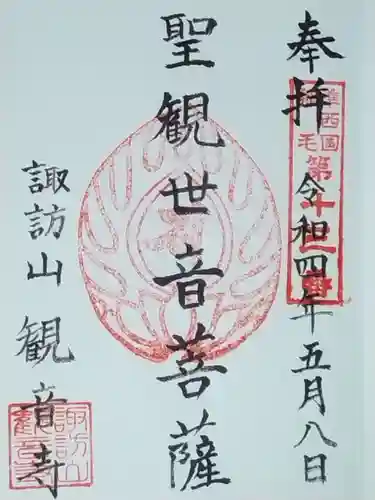 奉拝
令和四年五月八日
聖観世音菩薩
諏訪山観音寺
准西国
毛第十一番
諏訪山
観音寺